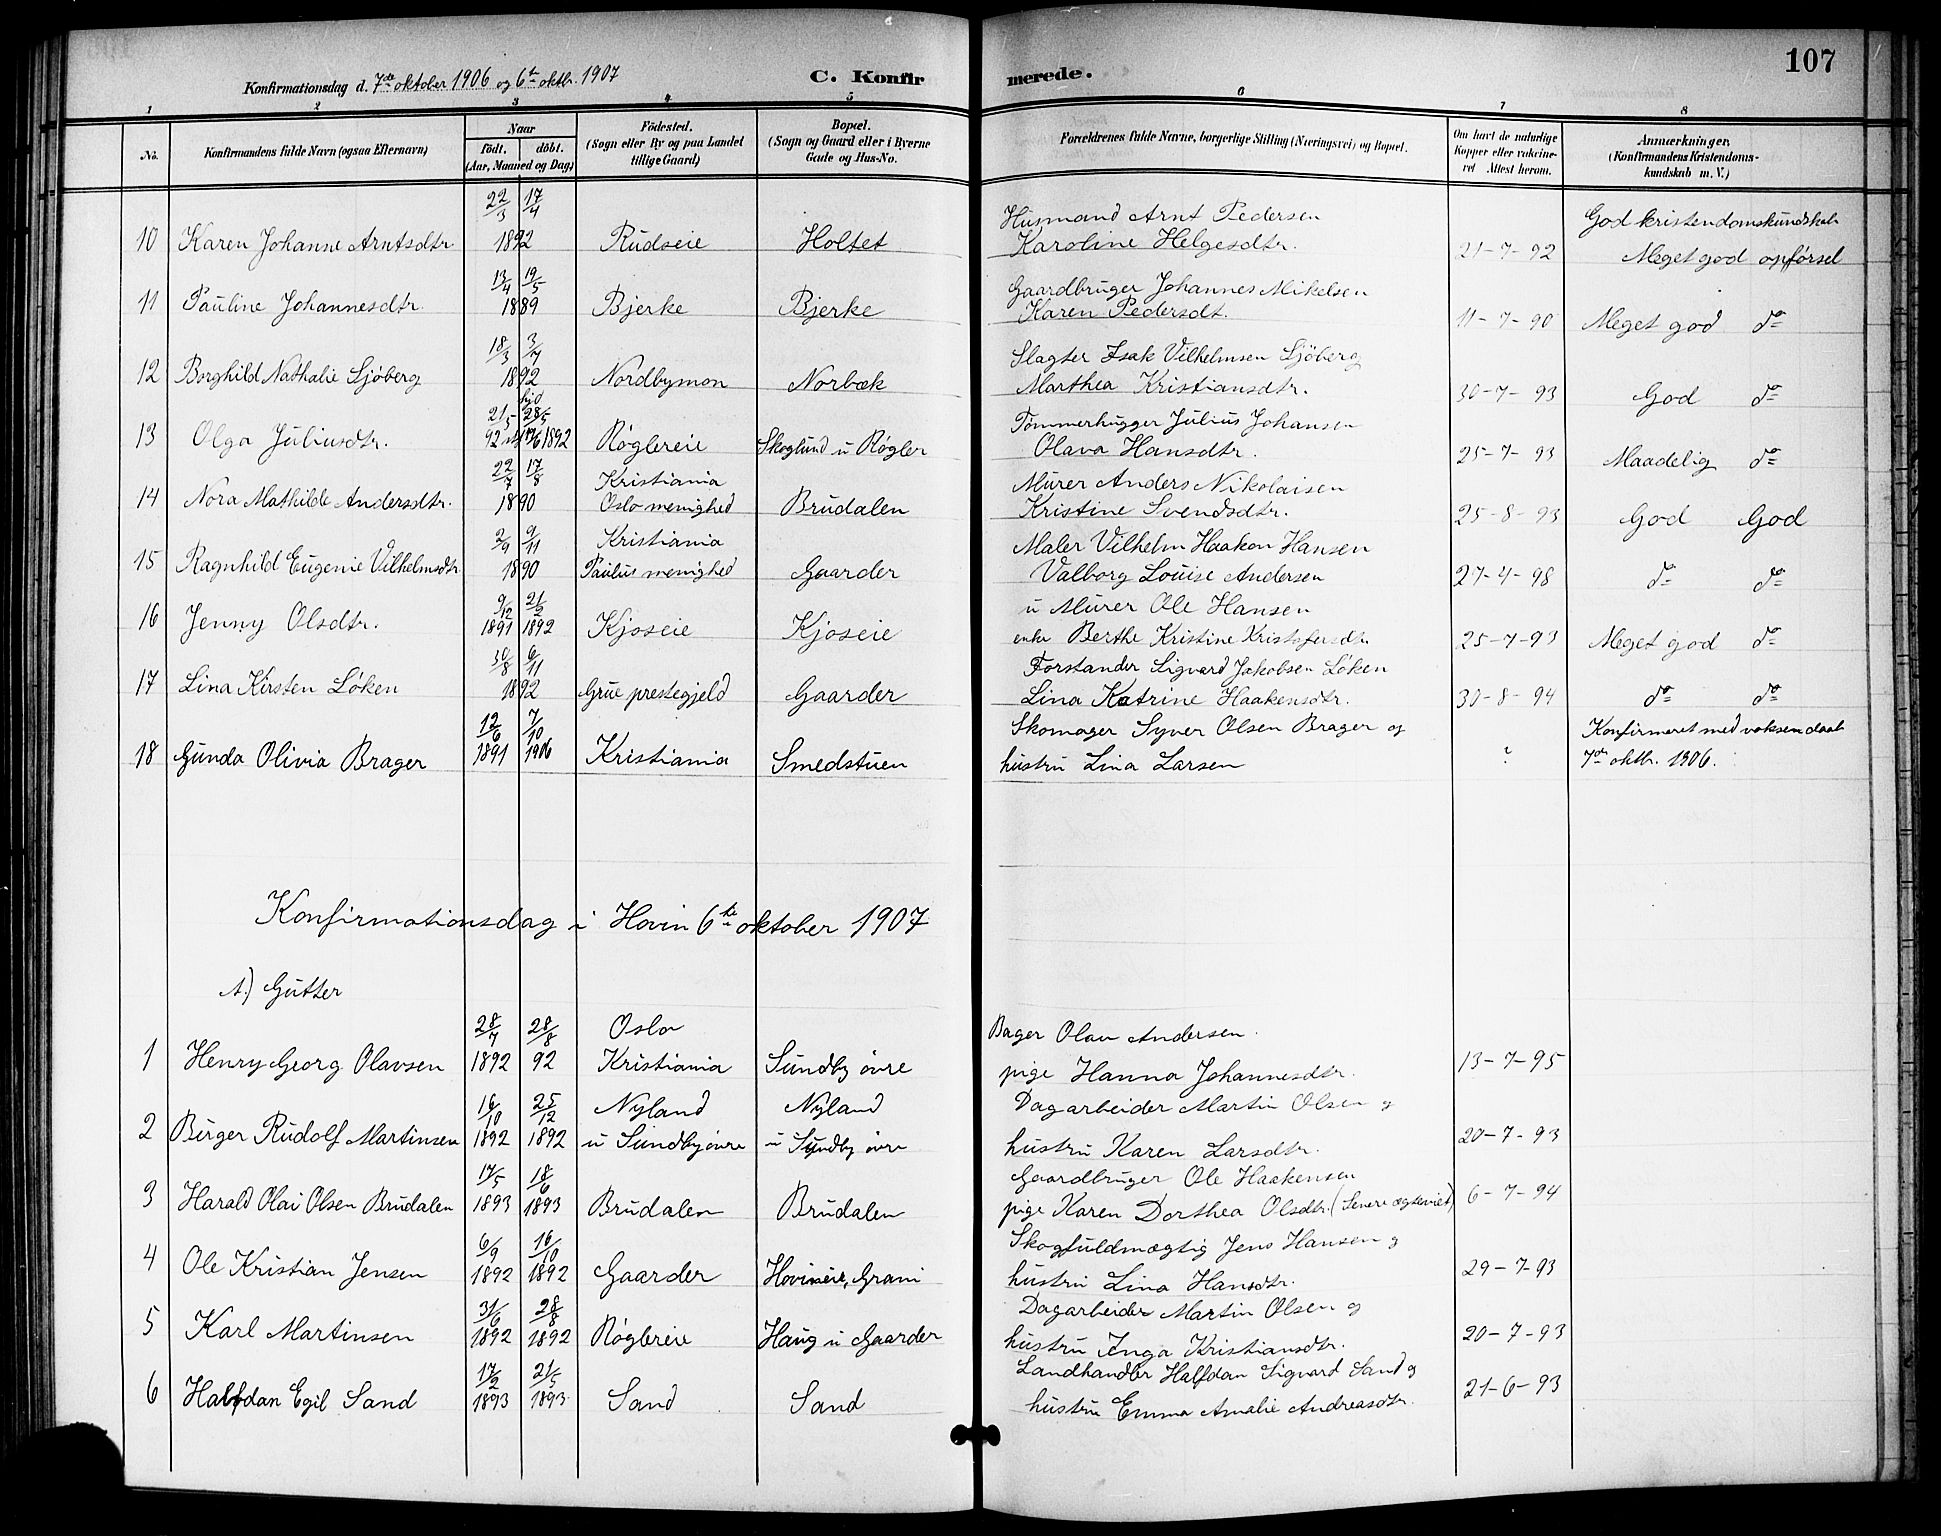 107
Konfirmationsdag d. 7de oktober 1906 og 6te oktbr. 1907
C. Konfirmerede.
1 2 3 4 5 6 7 8
No.
Konfirmandens fulde Navn (ogsaa Efternavn)
Naar
født. døbt.
(Aar, Maaned og Dag)
Fødested.
(Sogn eller By og paa Landet
tillige Gaard)
Bopæl.
(Sogn og Gaard eller i Byerne
Gade og Hus-No.
Forældrenes fulde Navne, borgerlige Stilling (Næringsvei) og Bopæl.
Om havt de naturlige
Kopper eller vakcine-
ret Attest herom.
Anmærkninger.
(Konfirmandens Kristendoms-
kundskab m. V.)
22/3 17/4 Husmand Arnt Pedersen God kristendomskundskab
10 Karen Johanne Arntsdtr 1892 Rudseie Holtet Karoline Helgesdtr. 21-7-92 Meget god opførsel
13/4 19/5 Gaardbruger Johannes Mikelsen
11 Pauline Johannesdtr. 1889 Bjerke Bjerke Karen Pedersdt. 11-7-90 Meget god do
18/3 3/7 Slagter Isak Vilhelmsen Sjöberg
12 Borghild Nathalie Sjöberg 1892 Nordbymon Norbæk Marthea Kristiansdtr. 30-7-93 God do
hjd
21/5 28/5 Tømmerhugger Julius Johansen
13 Olga Juliusdtr. 92 1892 Røglereie Skoglund u Røgler Olava Hansdtr. 25-7-93 Maadelig do
22/7 17/8 Kristiania Murer Anders Nikolaisen
14 Nora Mathilde Andersdtr. 1890 Oslo menighed Brudalen Kristine Svendsdtr. 25-8-93 God God
2/9 9/11 Kristiania Maler Vilhelm Haakon Hansen
15 Ragnhild Eugenie Vilhelmsdtr 1890 Paulus menighed Gaarder Valborg Louise Andersen 27-4-98 do do
9/12 21/2 u Murer Ole Hansen
16 Jenny Olsdtr. 1891 1892 Kjoseie Kjoseie enke Berthe Kristine Kristofersdtr. 25-7-93 Meget god do
30/8 6/11 Forstander Sigvard Jakobsen Løken
17 Lina Kirsten Løken 1892 Grue prestegjeld Gaarder Lina Katrine Haakensdtr. 30-8-94 do do
12/6 7/10 Skomager Syver Olsen Brager og Konfirmeret med voksendaab
18 Gunda Olivia Brager 1891 1906 Kristiania Smedstuen hustru Lina Larsen ? 7de oktbr. 1906.
Konfirmationsdag i Hovin 6te oktober 1907
A.) Gutter
28/7 28/8 Oslo Bager Olav Andersen.
1 Henry Georg Olavsen 1892 92 Kristiania Sundby øvre pige Hanna Johannesdtr. 13-7-95
16/10 25/12 Nyland Nyland Dagarbeider Martin Olsen og
2 Birger Rudolf Martinsen 1892 1892 u Sundby øvre u Sundby øvre hustru Karen Larsdtr. 20-7-93
17/5 18/6 Gaardbruger Ole Haakensen
3 Harald Olai Olsen Brudalen 1893 1893 Brudalen Brudalen pige Karen Dorthea Olsdtr. (Senere ægteviet) 6-7-94
6/9 16/10 Skogfuldmægtig Jens Hansen og
4 Ole Kristian Jensen 1892 1892 Gaarder Hovineie, Grani hustru Lina Hansdtr. 29-7-93
31/6 28/8 Dagarbeider Martin Olsen og
5 Karl Martinsen 1892 1892 Røglereie Haug u Gaarder hustru Inga Kristiansdtr. 20-7-93
17/2 21/5 Landhandler Halfdan Sigvard Sand og
6 Halfdan Egil Sand 1893 1893 Sand Sand hustru Emma Amalie Andreasdtr. 21-6-93